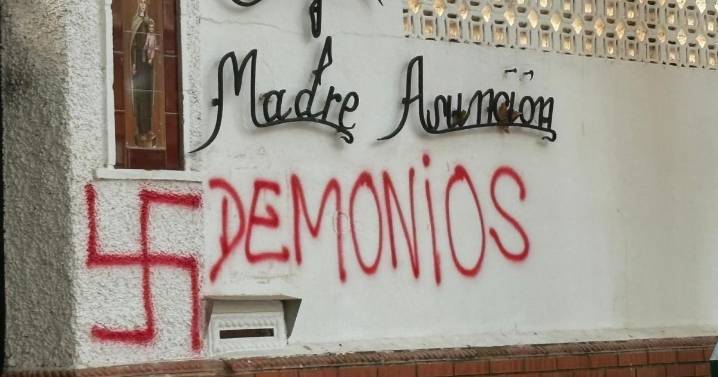 Madre Asunción
DEMONiOS